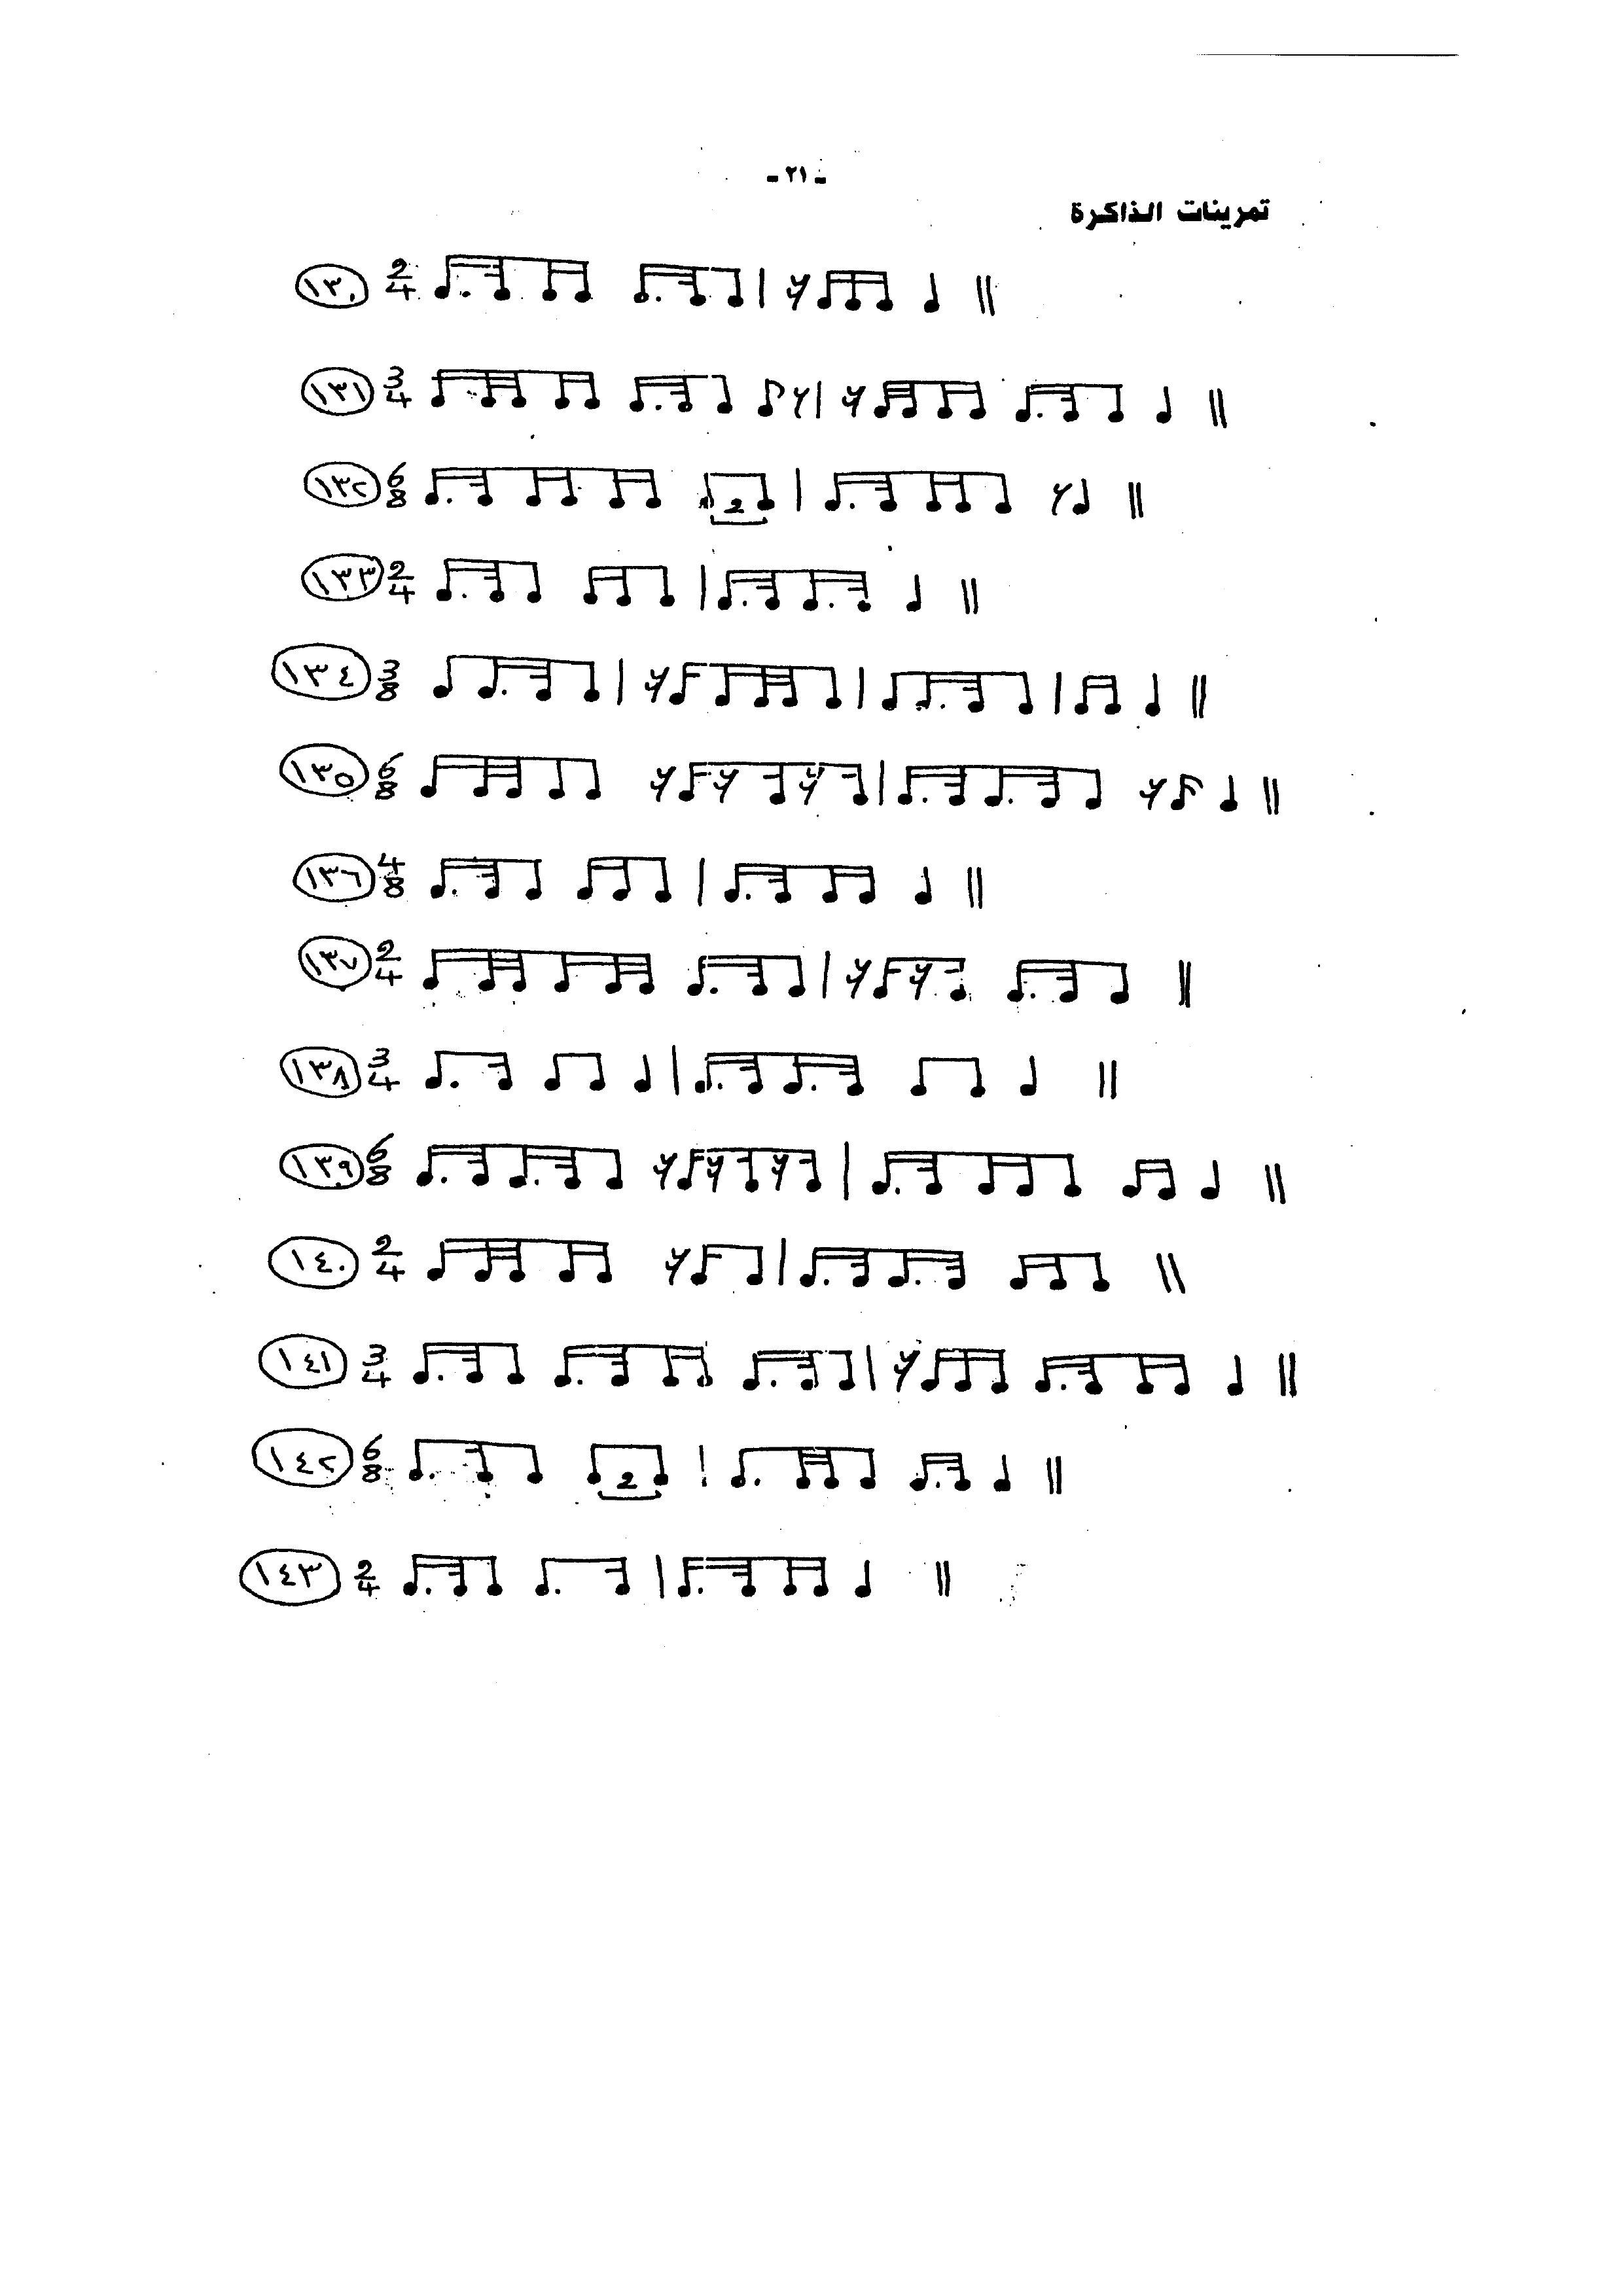 - ٢١ -
تمرينات الذاكرة
١٣٠ 2/4
١٣١ 3/4
١٣٢ 6/8 2
١٣٣ 2/4
١٣٤ 3/8
١٣٥ 6/8
١٣٦ 4/8
١٣٧ 2/4
١٣٨ 3/4
١٣٩ 6/8
١٤٠ 2/4
١٤١ 3/4
١٤٢ 6/8 2
١٤٣ 2/4